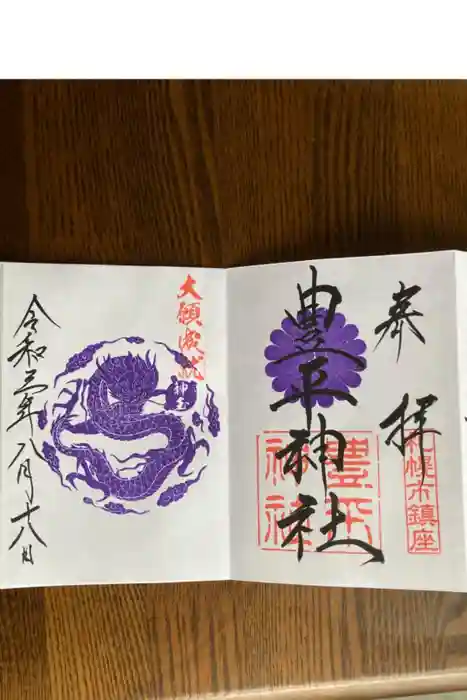 奉拝
札幌市鎮座
豊平神社
豊平
神社
大願成就
令和三年八月十八日